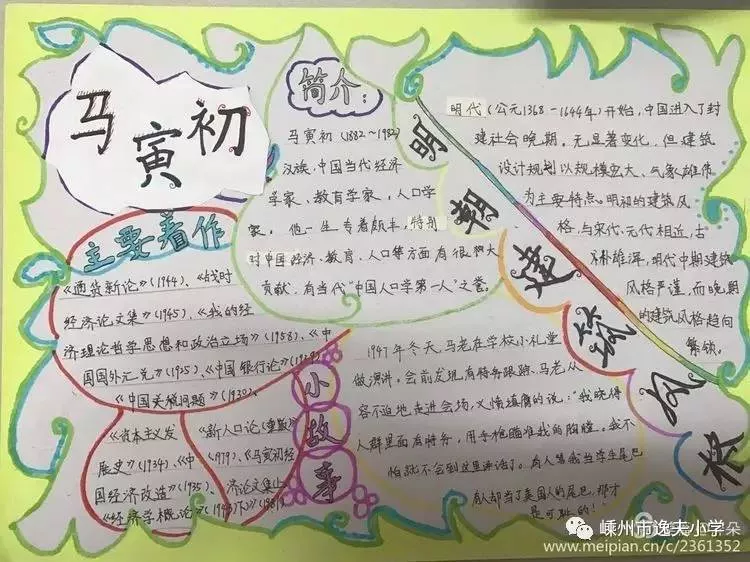 马寅初
简介：
马寅初（1882～1982）
汉族，中国当代经济
学家、教育学家、人口学
家。他一生专着颇丰，特别
对中国经济、教育、人口等方面有很大
贡献，有当代“中国人口学第一人”之誉。
主要着作
《通货新论》（1944）、《战时
经济论文集》（1945）、《我的经
济理论哲学思想和政治立场》（1958）、《中
国国外汇兑》（1925）、《中国银行论》
《中国关税问题》（1930）、
《资本主义发
展史》（1934）、《中
国经济改造》（1935）、
《经济学概论》
《新人口论（重版）》
（1979）、《马寅初经
济论文集
小故事
1947年冬天，马老在学校小礼堂
做演讲。会前发现有特务跟踪，马老从
容不迫地走进会场，义愤填膺的说：“我晓得
人群里面有特务，用手枪瞄准我的胸膛。我不
怕就不会到这里讲话了。有人当学生尾巴
有人却当了美国人的尾巴，那才
是可耻的！”
明朝建筑风格
明代（公元1368－1644年）开始，中国进入了封
建社会晚期。无显著变化，但建筑
设计规划以规模宏大、气象雄伟
为主要特点。明初的建筑风
格，与宋代、元代相近，古
朴雄浑，明代中期建筑
风格严谨，而晚期
的建筑风格趋向
繁琐。
嵊州市逸夫小学
朵
www.meipian.cn/c/2361352